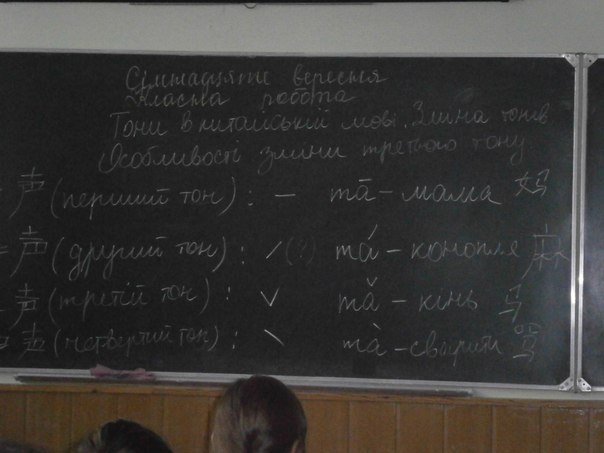 Сімнадцяте вересня
Класна робота
Тони в китайській мові. Зміна тонів
Особливості зміни третього тону.
一声 (перший тон): — mā – мама 妈
二声 (другий тон): ˊ (?) má – конопля 麻
三声 (третій тон): ˇ mǎ – кінь 马
声 (четвертий тон): ˋ mà – сварити 骂